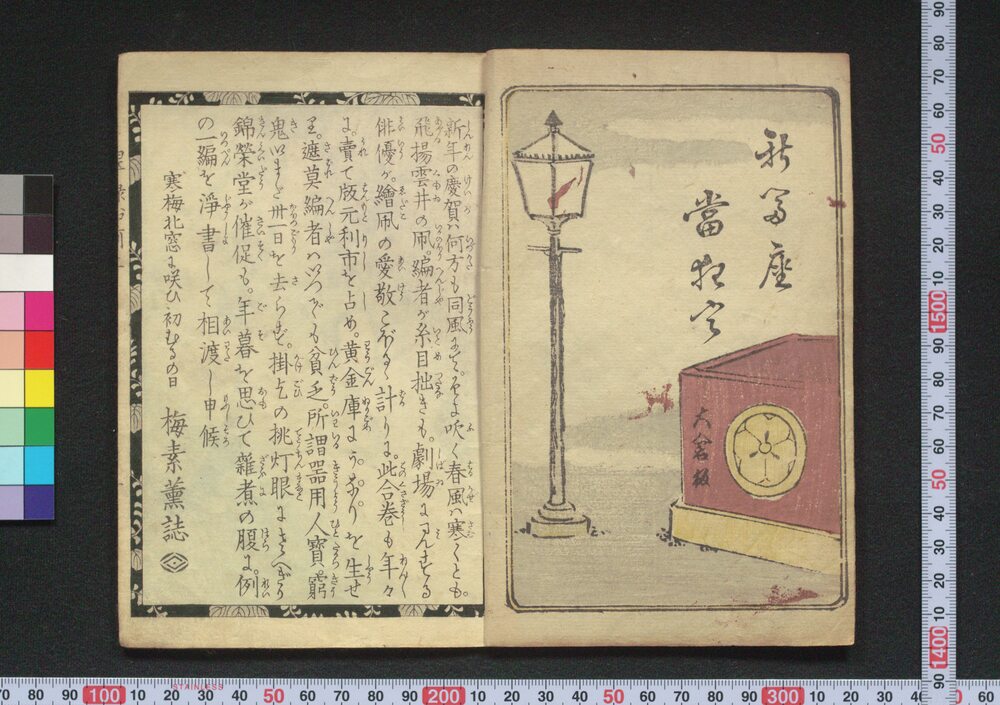 新富座
當狂言
大倉板
新年の慶賀ハ何方も同風にて。そよ吹く春風ハ寒くとも。
飛揚雲井の凧。編者が糸目拙きも。劇場にて
俳優が。繪凧の愛敬こぼるゝ計りに。此合巻も年々
に。賣て版元利市を占め。黄金庫
遮莫編者ハいつでも貧乏所謂器用人寶。窮
鬼いまだ卅一日を去らず。掛乞の挑灯眼に
錦榮堂が催促も。年暮を思ひて雜煮の腹に。例
の一編を淨書して相渡し申候
寒梅北窓に咲ひ初むるの日
梅素薫誌